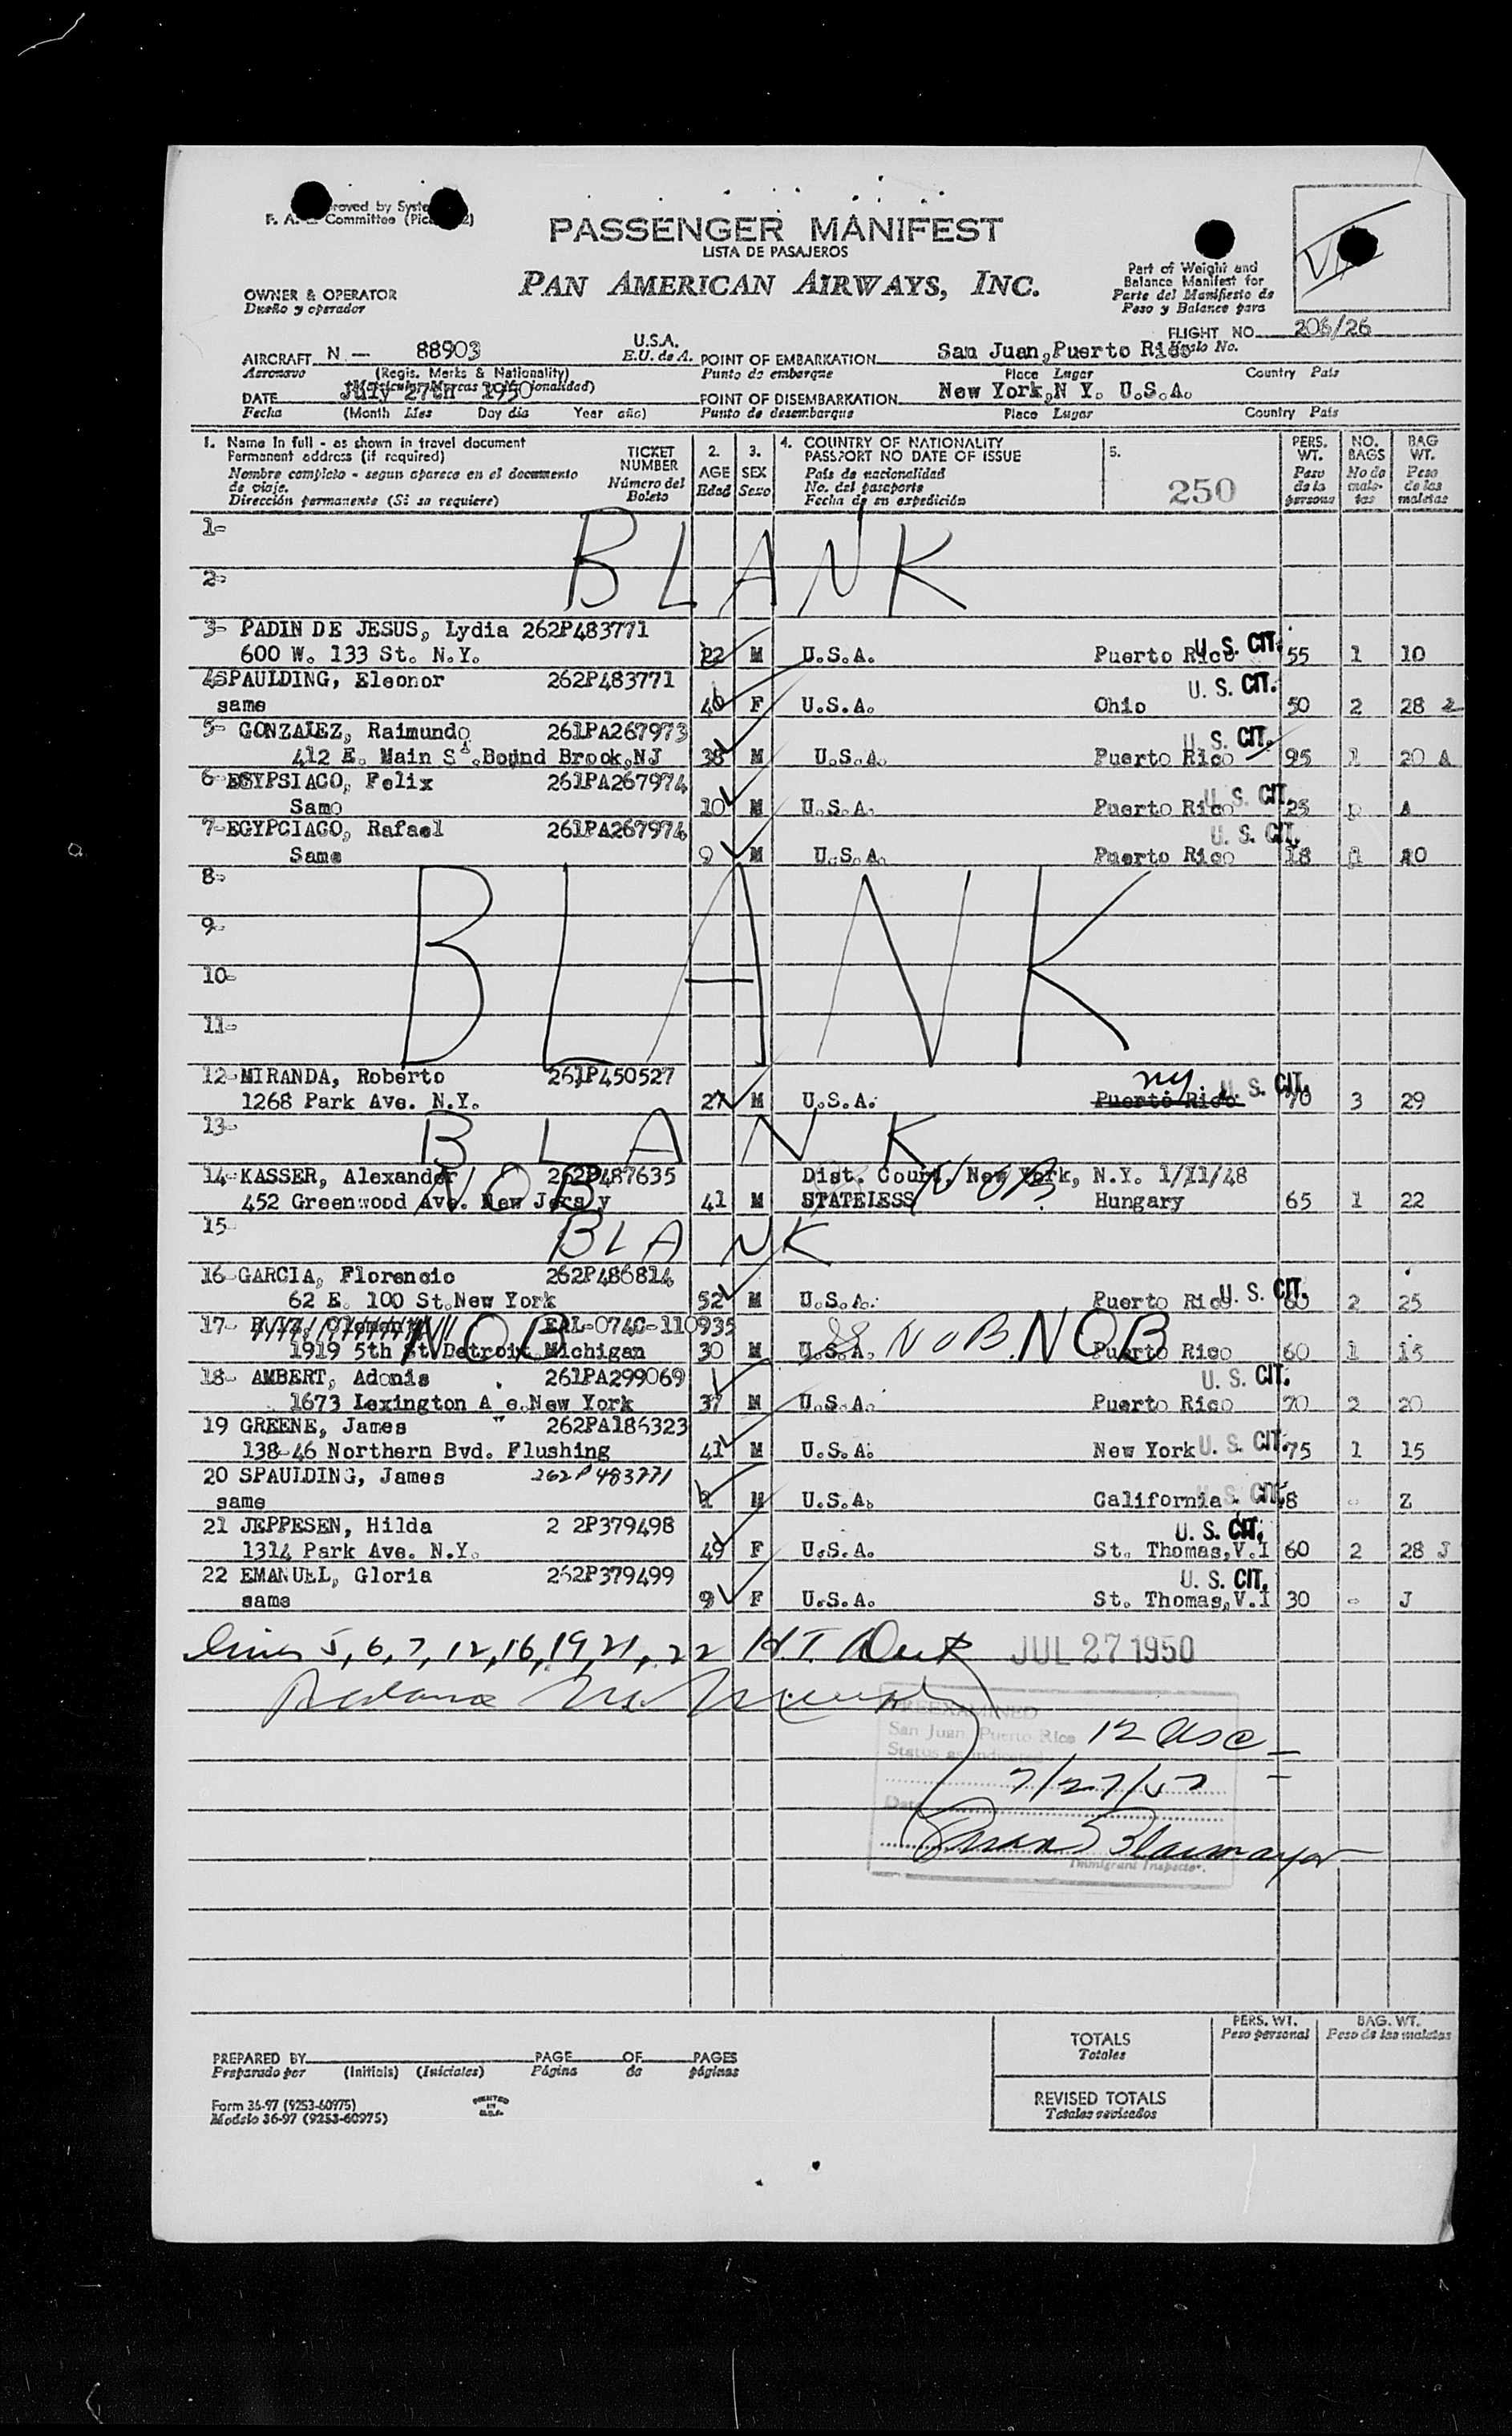 roved by Syste
F. A. Committee (Pic
PASSENGER MANIFEST
LISTA DE PASAJEROS
PAN AMERICAN AIRWAYS, INC.
Part of Weight and
Balance Manifest for
Parte del Manifiesto de
Peso y Balance para
OWNER & OPERATOR
Dueño y operador
FLIGHT NO. 206/26
Vuelo No.
AIRCRAFT N — 88903 U.S.A. POINT OF EMBARKATION San Juan, Puerto Rico
Aeronave (Regis. Marks & Nationality) E.U. de A. Punto de embarque Place Lugar Country País
DATE July 27th 1950 POINT OF DISEMBARKATION New York,N Y. U.S.A.
Fecha (Month Mes Day día Year año) Punto de desembarque Place Lugar Country País
1. Name in full - as shown in travel document
Permanent address (if required)
Nombre completo - segun aparece en el documento
de viaje.
Dirección permanente (Si se requiere)
TICKET
NUMBER
Número del
Boleto
2.
AGE
Edad
3.
SEX
Sexo
4. COUNTRY OF NATIONALITY
PASSPORT NO DATE OF ISSUE
País de nacionalidad
No. del pasaporte
Fecha de su expedición
5.
250
PERS.
WT.
Peso
de la
persona
NO.
BAGS
No de
male-
tas
BAG
WT.
Peso
de las
maletas
1-
BLANK
2-
3- PADIN DE JESUS, Lydia 262P483771
600 W. 133 St. N.Y. 22 M U.S.A. Puerto Rico U. S. CIT. 55 1 10
4SPAULDING, Eleonor 262P483771 U. S. CIT.
same 40 F U.S.A. Ohio 50 2 28
5- GONZALEZ, Raimundo 261PA267973 U. S. CIT.
412 E. Main St.Bound Brook,NJ 38 M U.S.A. Puerto Rico 95 1 20 A
6-EGYPSIACO, Felix 261PA267974 U. S. CIT.
Same 10 M U.S.A. Puerto Rico 25 A
7-EGYPCIACO, Rafael 261PA267974 U. S. CIT.
Same 9 M U.S.A. Puerto Rico 18
8-
9-
BLANK
10-
11-
12-MIRANDA, Roberto 261P450527 ny
1268 Park Ave. N.Y. 27 M U.S.A. Puerto Rico U. S. CIT. 70 3 29
13- BLANK
14-KASSER, Alexander 262P487635 Dist. Court, New York, N.Y. 1/11/48
NOB NOB
452 Greenwood Ave. New Jersey 41 M STATELESS Hungary 65 1 22
15 BLANK
16-GARCIA, Florencio 262P486814
62 E. 100 St.New York 52 M U.S.A. Puerto Rico U. S. CIT. 60 2 25
17- EAL-074C-110935
NOB NOB. NOB
1919 5th St Detroit Michigan 30 M U.S.A. Puerto Rico 60 1
18- AMBERT, Adonis 261PA299069 U. S. CIT.
1673 Lexington A e.New York 37 M U.S.A. Puerto Rico 70 2 20
19 GREENE, James 262PA186323
138-46 Northern Bvd. Flushing 41 M U.S.A. New York U. S. CIT. 75 1 15
20 SPAULDING, James 262P483771
same M U.S.A. California U. S. CIT. 8 - Z
21 JEPPESEN, Hilda 2 2P379498 U. S. CIT.
1314 Park Ave. N.Y. 49 F U.S.A. St. Thomas,V.I 60 2 28 J
22 EMANUEL, Gloria 262P379499 U. S. CIT.
same 9 F U.S.A. St. Thomas,V.I 30 - J
lines 5,6,7,12,16,19,21,22 JUL 27 1950
PREEXAMINED
San Juan, Puerto Rico
Status as indicated
12 usc
7/27/50
Date
Immigrant Inspector.
TOTALS
Totales
PERS. WT.
Peso personal
BAG. WT.
Peso de las maletas
REVISED TOTALS
Totales revisados
PREPARED BY PAGE OF PAGES
Preparado por (Initials) (Iniciales) Página de páginas
Form 36-97 (9253-60975)
Modelo 36-97 (9253-60975)
PRINTED
IN
U.S.A.